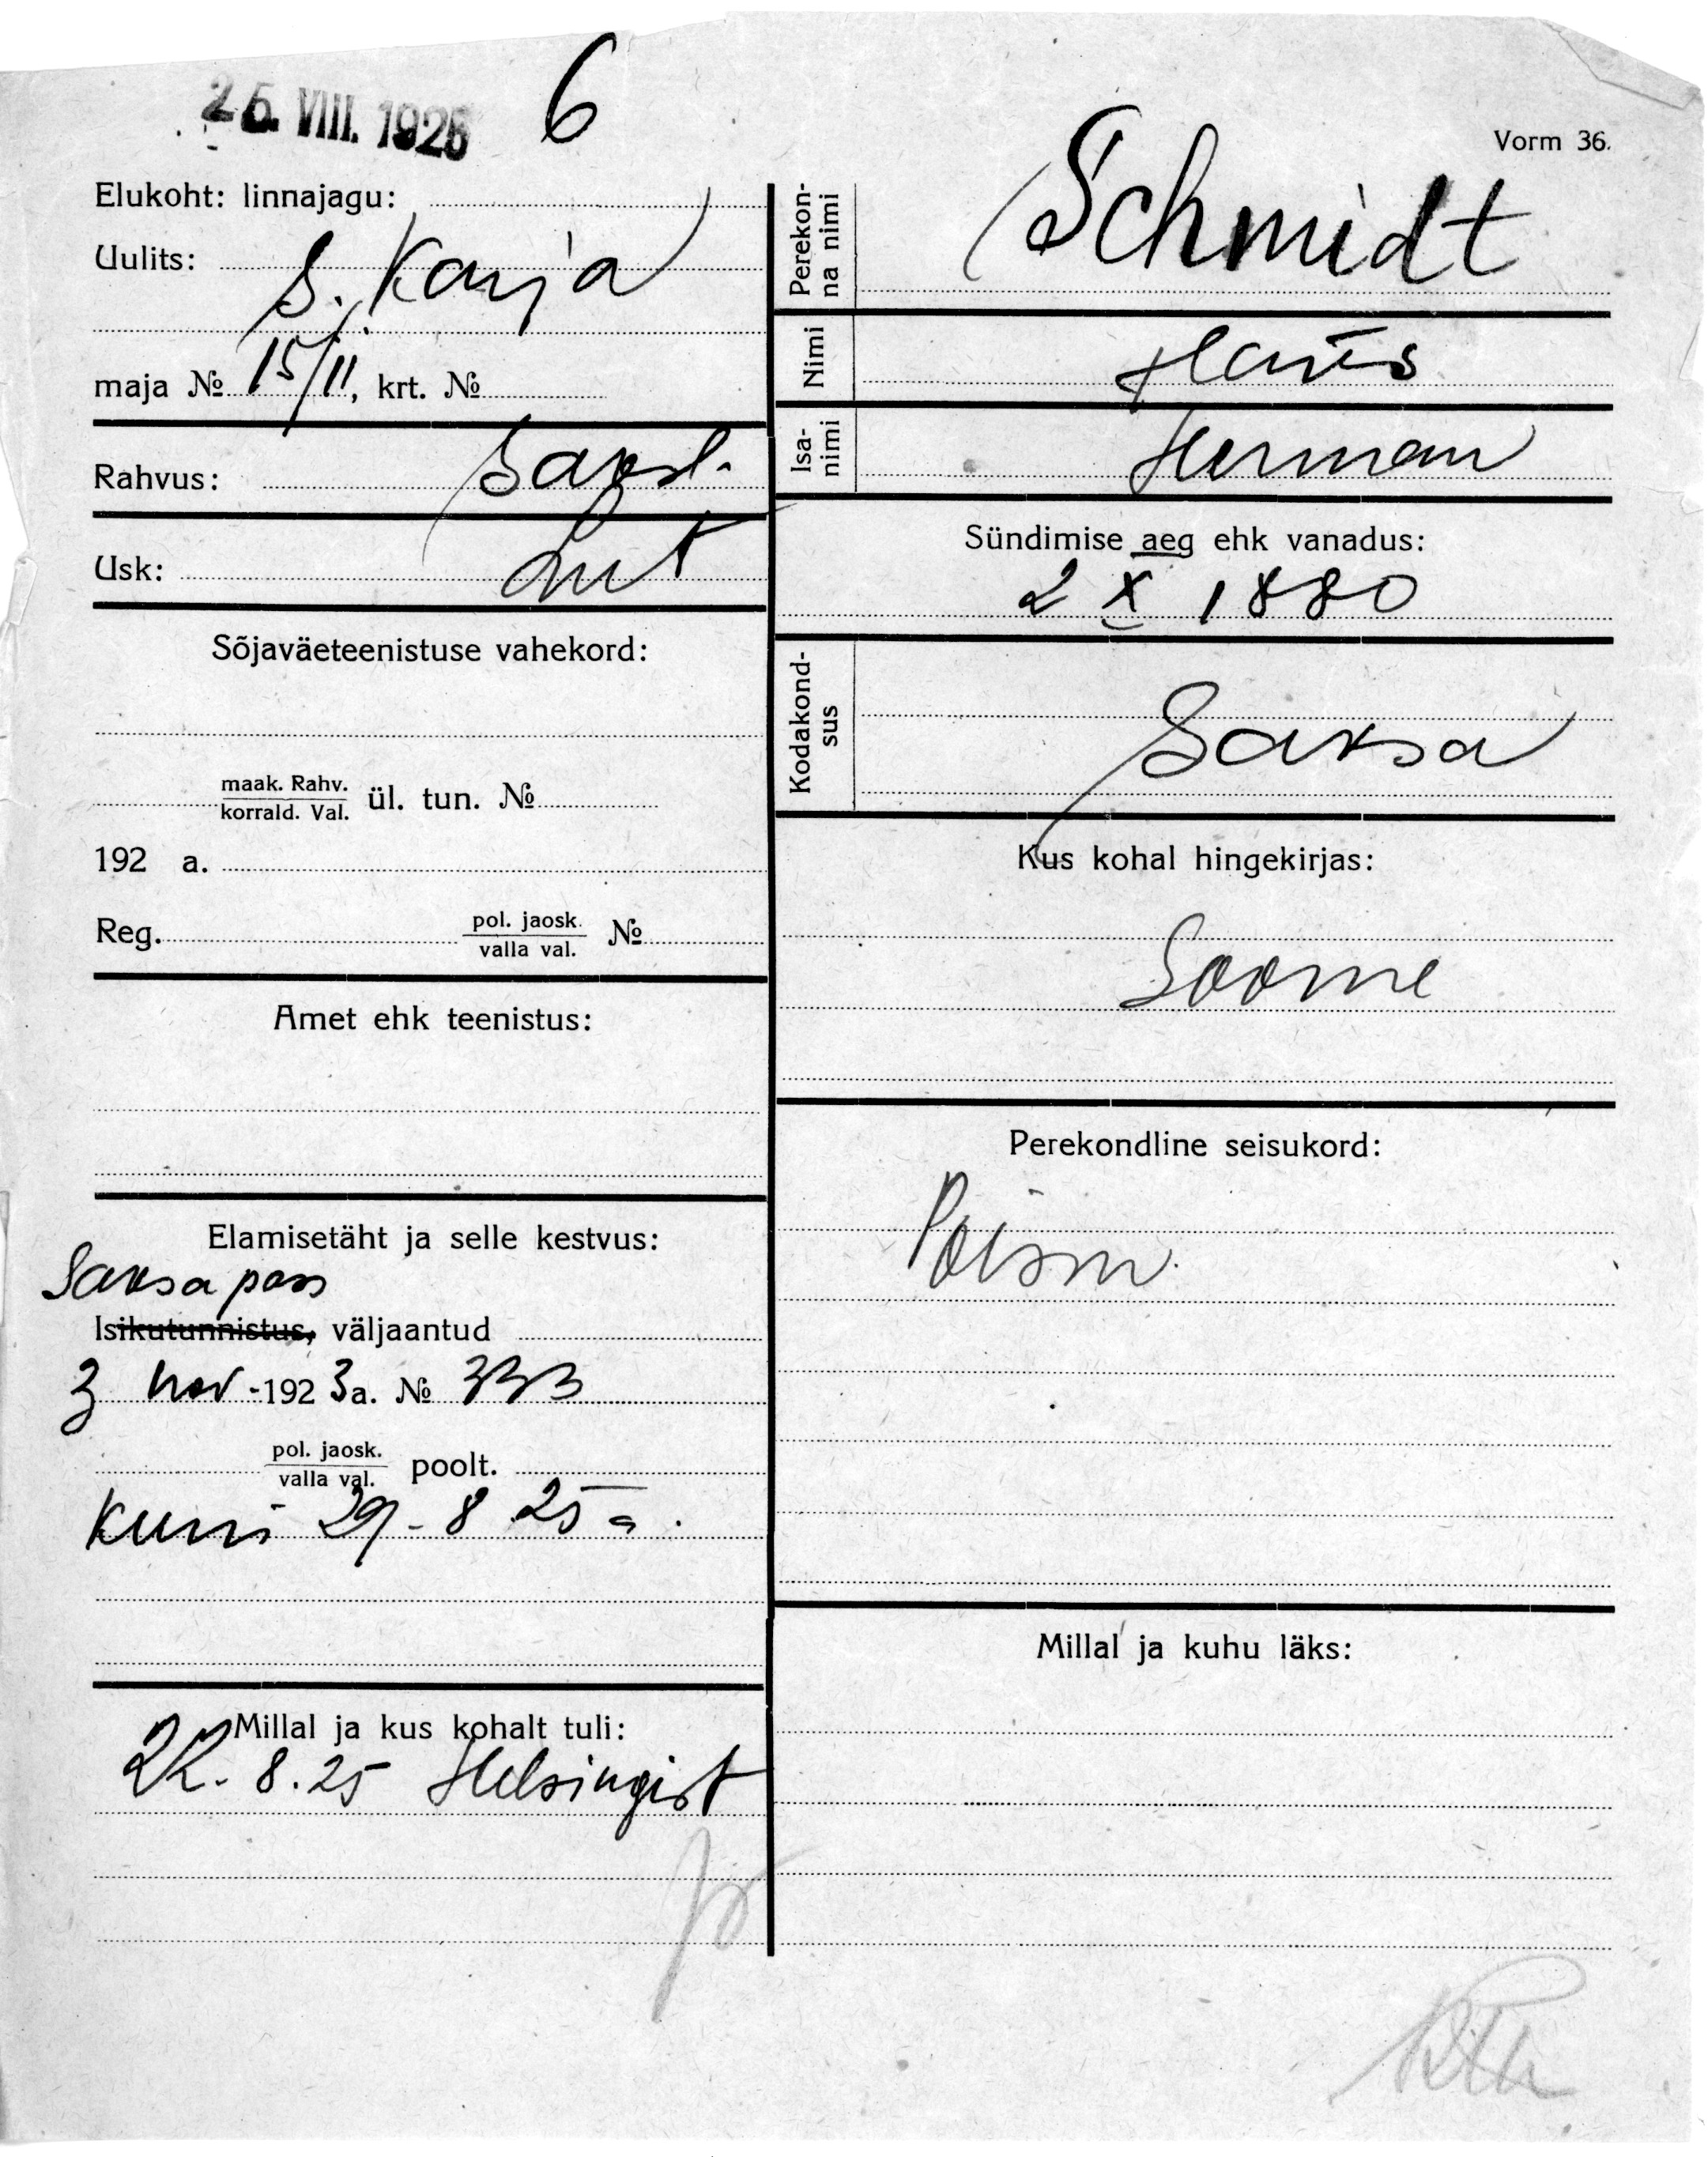 25. VIII. 1925 6
Vorm 36.
Elukoht: linnajagu:
Uulits: S. Karja
maja № 15/11, krt. №
Rahvus: saksl.
Usk: Lut
Sõjaväeteenistuse vahekord:
maak. Rahv.
korrald. Val. ül. tun. №
192 a.
Reg. pol. jaosk. №
valla val.
Amet ehk teenistus:
Elamisetäht ja selle kestvus:
Saksa pass
Isikutunnistus, väljaantud
3 nov - 1923 a. № 333
pol. jaosk.
valla val. poolt.
kuni 29 - 8 25 a.
Millal ja kus kohalt tuli:
22. 8. 25 Helsingist
Perekon-
na nimi Schmidt
Nimi Hans
Isa-
nimi Herman
Sündimise aeg ehk vanadus:
2 X 1880
Kodakond-
sus Saksa
Kus kohal hingekirjas:
Soome
Perekondline seisukord:
Poism.
Millal ja kuhu läks: